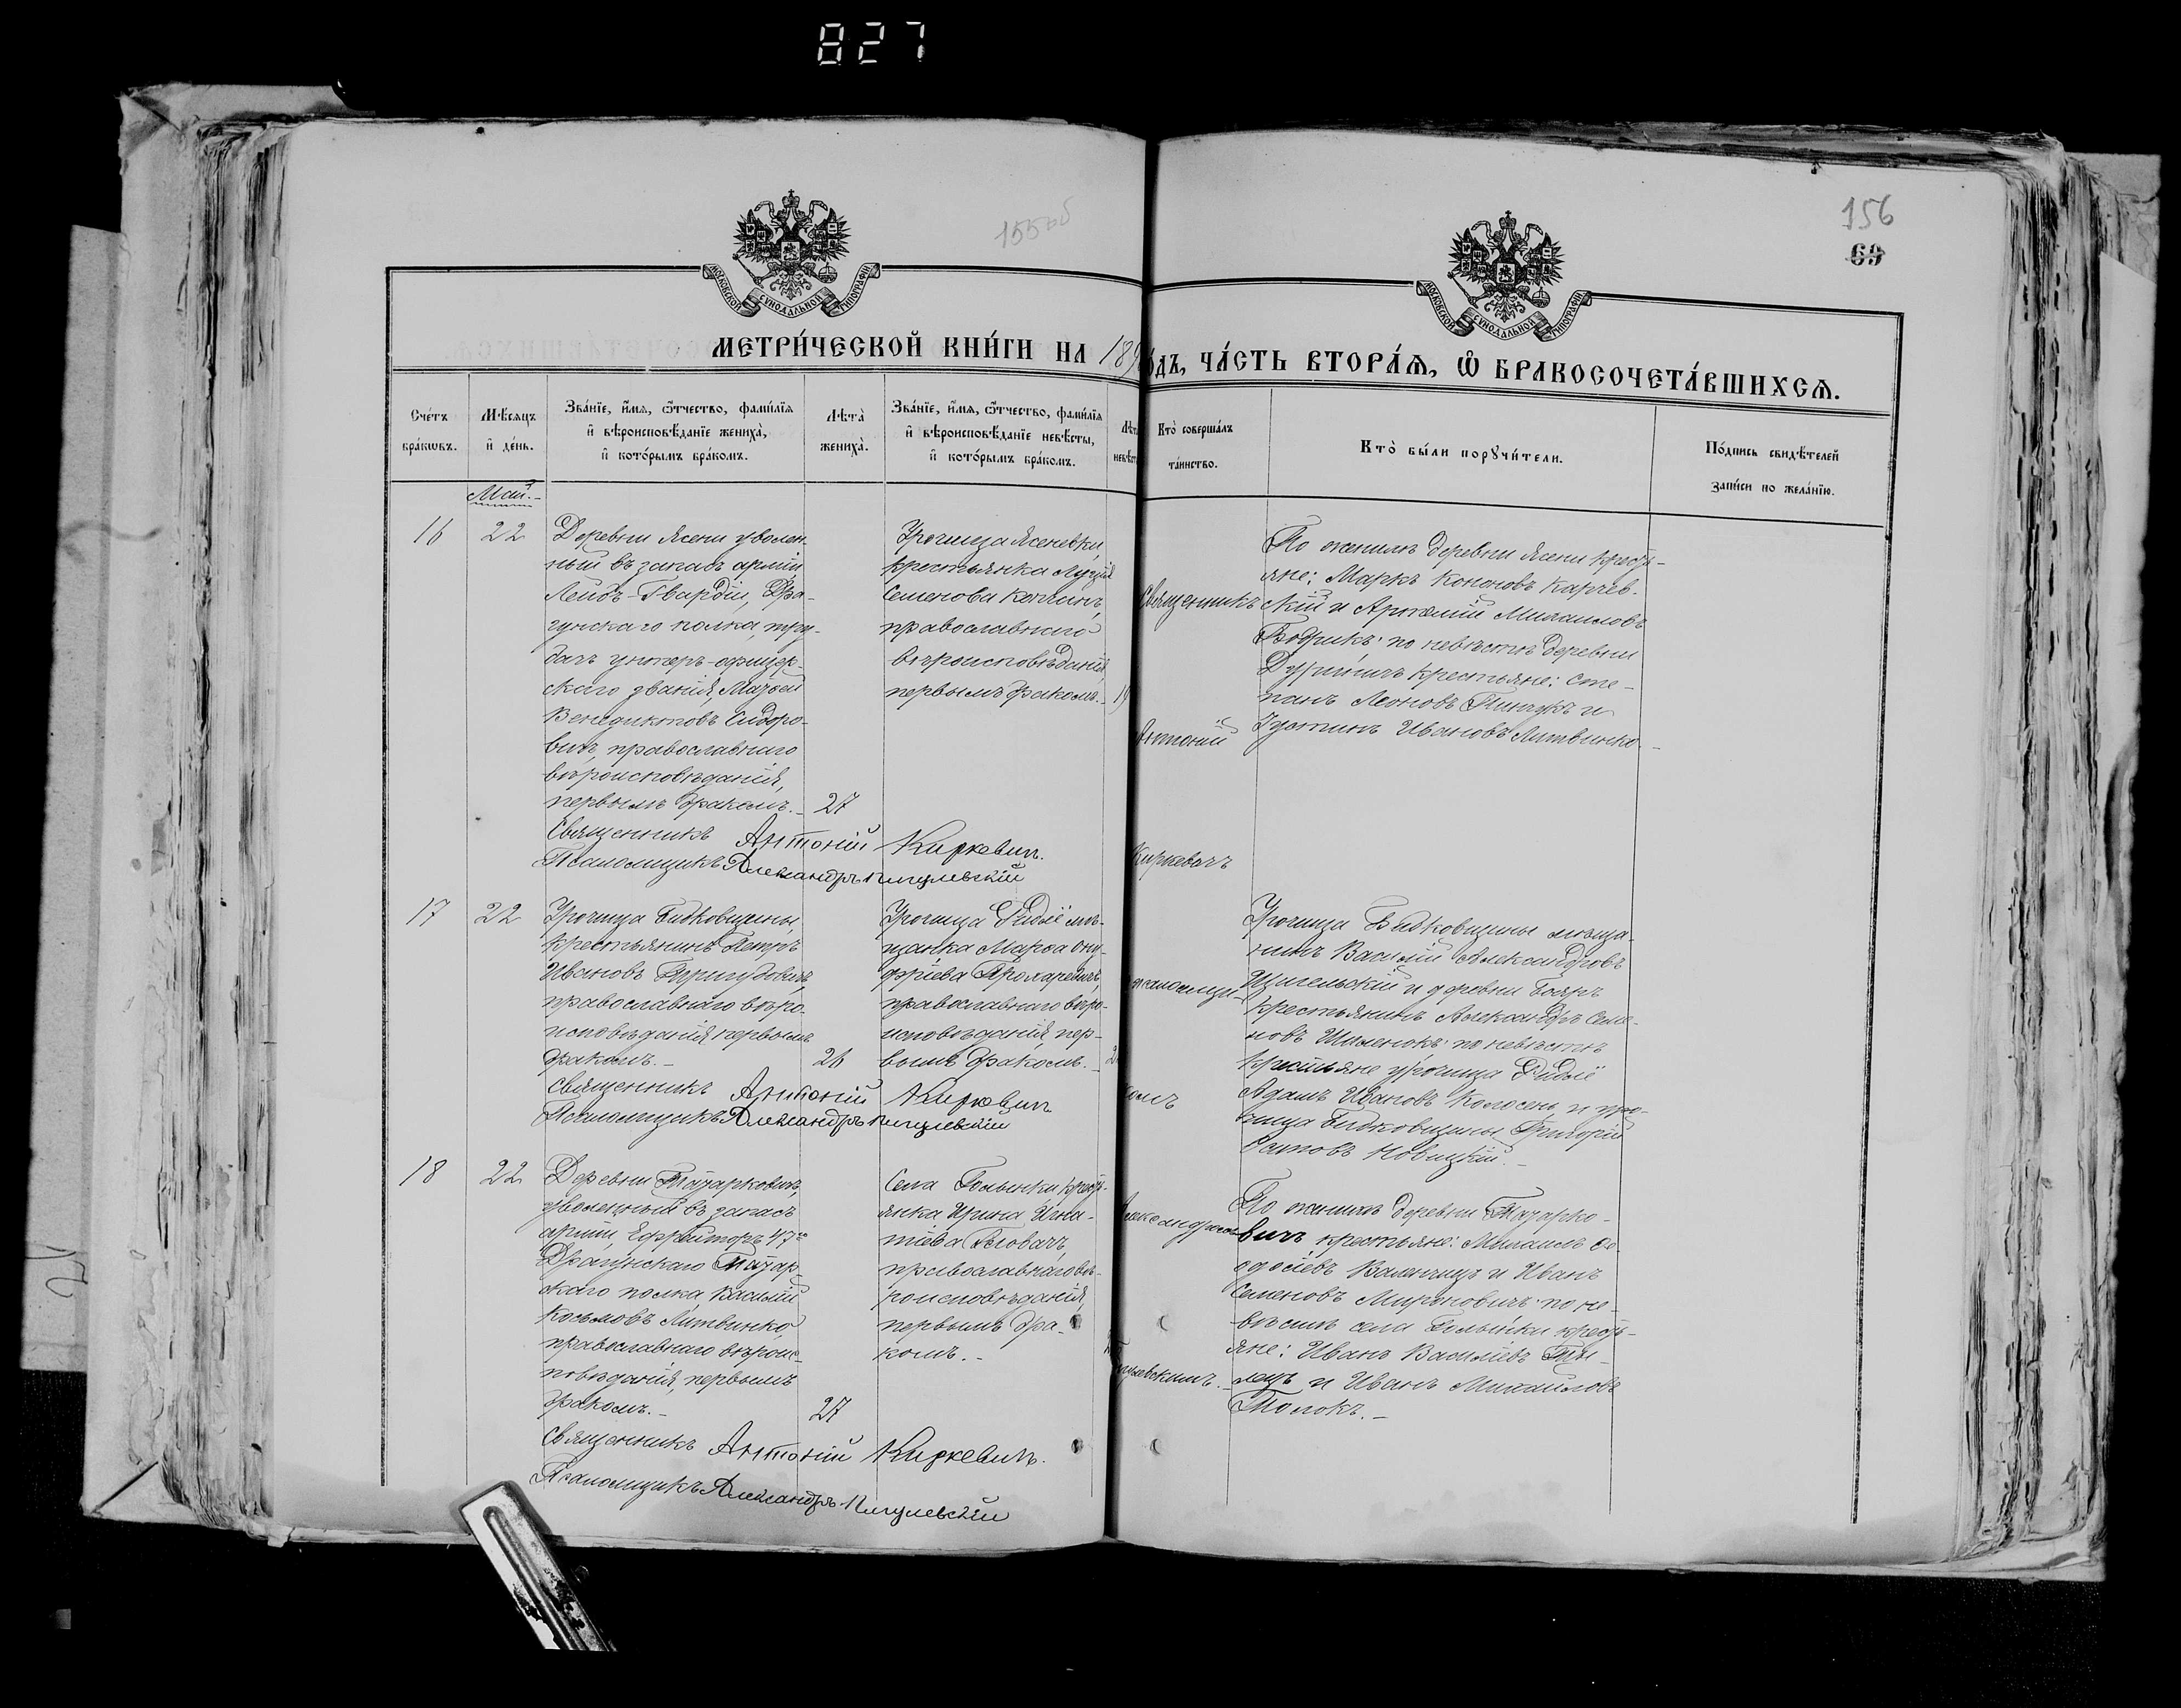 827
155 об
156
69
МОСКОВСКОЙ СѴНОДАЛЬНОЙ ТИПОГРАФІИ
МОСКОВСКОЙ СѴНОДАЛЬНОЙ ТИПОГРАФІИ
МЕТРИ́ЧЕСКОЙ КНИ́ГИ НА 189
ДЪ, ЧА́СТЬ ВТОРА́Ѧ, Ѽ БРАКОСОЧЕТА́ВШИХСѦ.
Сче́тъ бра́кѡвъ.
Мѣ́сѧцъ и҆ де́нь.
Зва́нїе, и҆́мѧ, ѻ҆́тчество, фами́лїѧ
и҆ вѣроисповѣ́данїе жениха̀,
и҆ кото́рымъ бра́комъ.
Лѣта̀ жениха̀.
Зва́нїе, и҆́мѧ, ѻ҆́тчество, фами́лїѧ
и҆ вѣроисповѣ́данїе невѣ́сты,
и҆ кото́рымъ бра́комъ.
Кто̀ соверша́лъ та́инство.
Кто̀ бы́ли порꙋчи́тели.
По́дпись свидѣ́телей
за́писи по жела́нїю.
Май.-
16
22
Деревни Ясени уволен-
ный въ запасъ арміи
Лейбъ-Гвардіи, Дра-
гунскаго полка, тру-
бачъ унтеръ-офицер-
скаго званія, Матфей
Венедиктовъ Сидоро-
вичъ, православнаго
вѣроисповѣданія,
первымъ бракомъ.-
27
Урочища Ясеневки,
крестьянка
Семенова
православнаго
вѣроисповѣданія,
первымъ бракомъ.-
19
Священникъ
Антоній
Киркевичъ
По женихѣ деревни Ясени кресть-
яне: Маркъ Кононовъ Карчев-
скій и Артемій Михаиловъ
Бодрикъ; по невѣстѣ деревни
крестьяне: Сте-
панъ Леоновъ Пинчукъ и
Іустинъ Ивановъ Литвинко.-
Священникъ Антоній Киркевичъ.
Псаломщикъ Александръ Пигулевскій
17
22
Урочища Бидковщины,
крестьянинъ Петръ
Ивановъ
православнаго вѣро-
исповѣданія первымъ
бракомъ.-
26
Урочища мѣ-
щанка Марфа Ону-
фріева
православнаго вѣро-
исповѣданія, пер-
вымъ бракомъ.-
псаломщи-
комъ
Урочища Бидковщины мѣща-
нинъ Василій Александровъ
и деревни Бояръ
крестьянинъ Александръ Семе-
новъ по невѣстѣ
крестьяне урочища
Адамъ Ивановъ Колосень и уро-
чища Бидковщины Григорій
Новицкій.-
Священникъ Антоній Киркевичъ
Псаломщикъ Александръ Пигулевскій
18
22
Деревни
уволенный въ запасъ
арміи, Ефрейторъ 47го
Драгунскаго Татар-
скаго полка Василій
Козьмовъ Литвинко,
православнаго вѣроис-
повѣданія, первымъ
бракомъ.-
27
Села Голынки кресть-
янка Ирина Игна-
тіева Головачъ,
православнаго вѣ-
роисповѣданія,
первымъ бра-
комъ.-
Александромъ
Пигулевскимъ.-
По женихѣ деревни
вичъ крестьяне: Михаилъ Ѳе-
одосіевъ Валынецъ и Иванъ
Семеновъ Мироновичъ; по не-
вѣстѣ села Голынки кресть-
яне: Иванъ Василіевъ
и Иванъ Михаиловъ
Толокъ.-
Священникъ Антоній Киркевичъ.
Псаломщикъ Александръ Пигулевскій